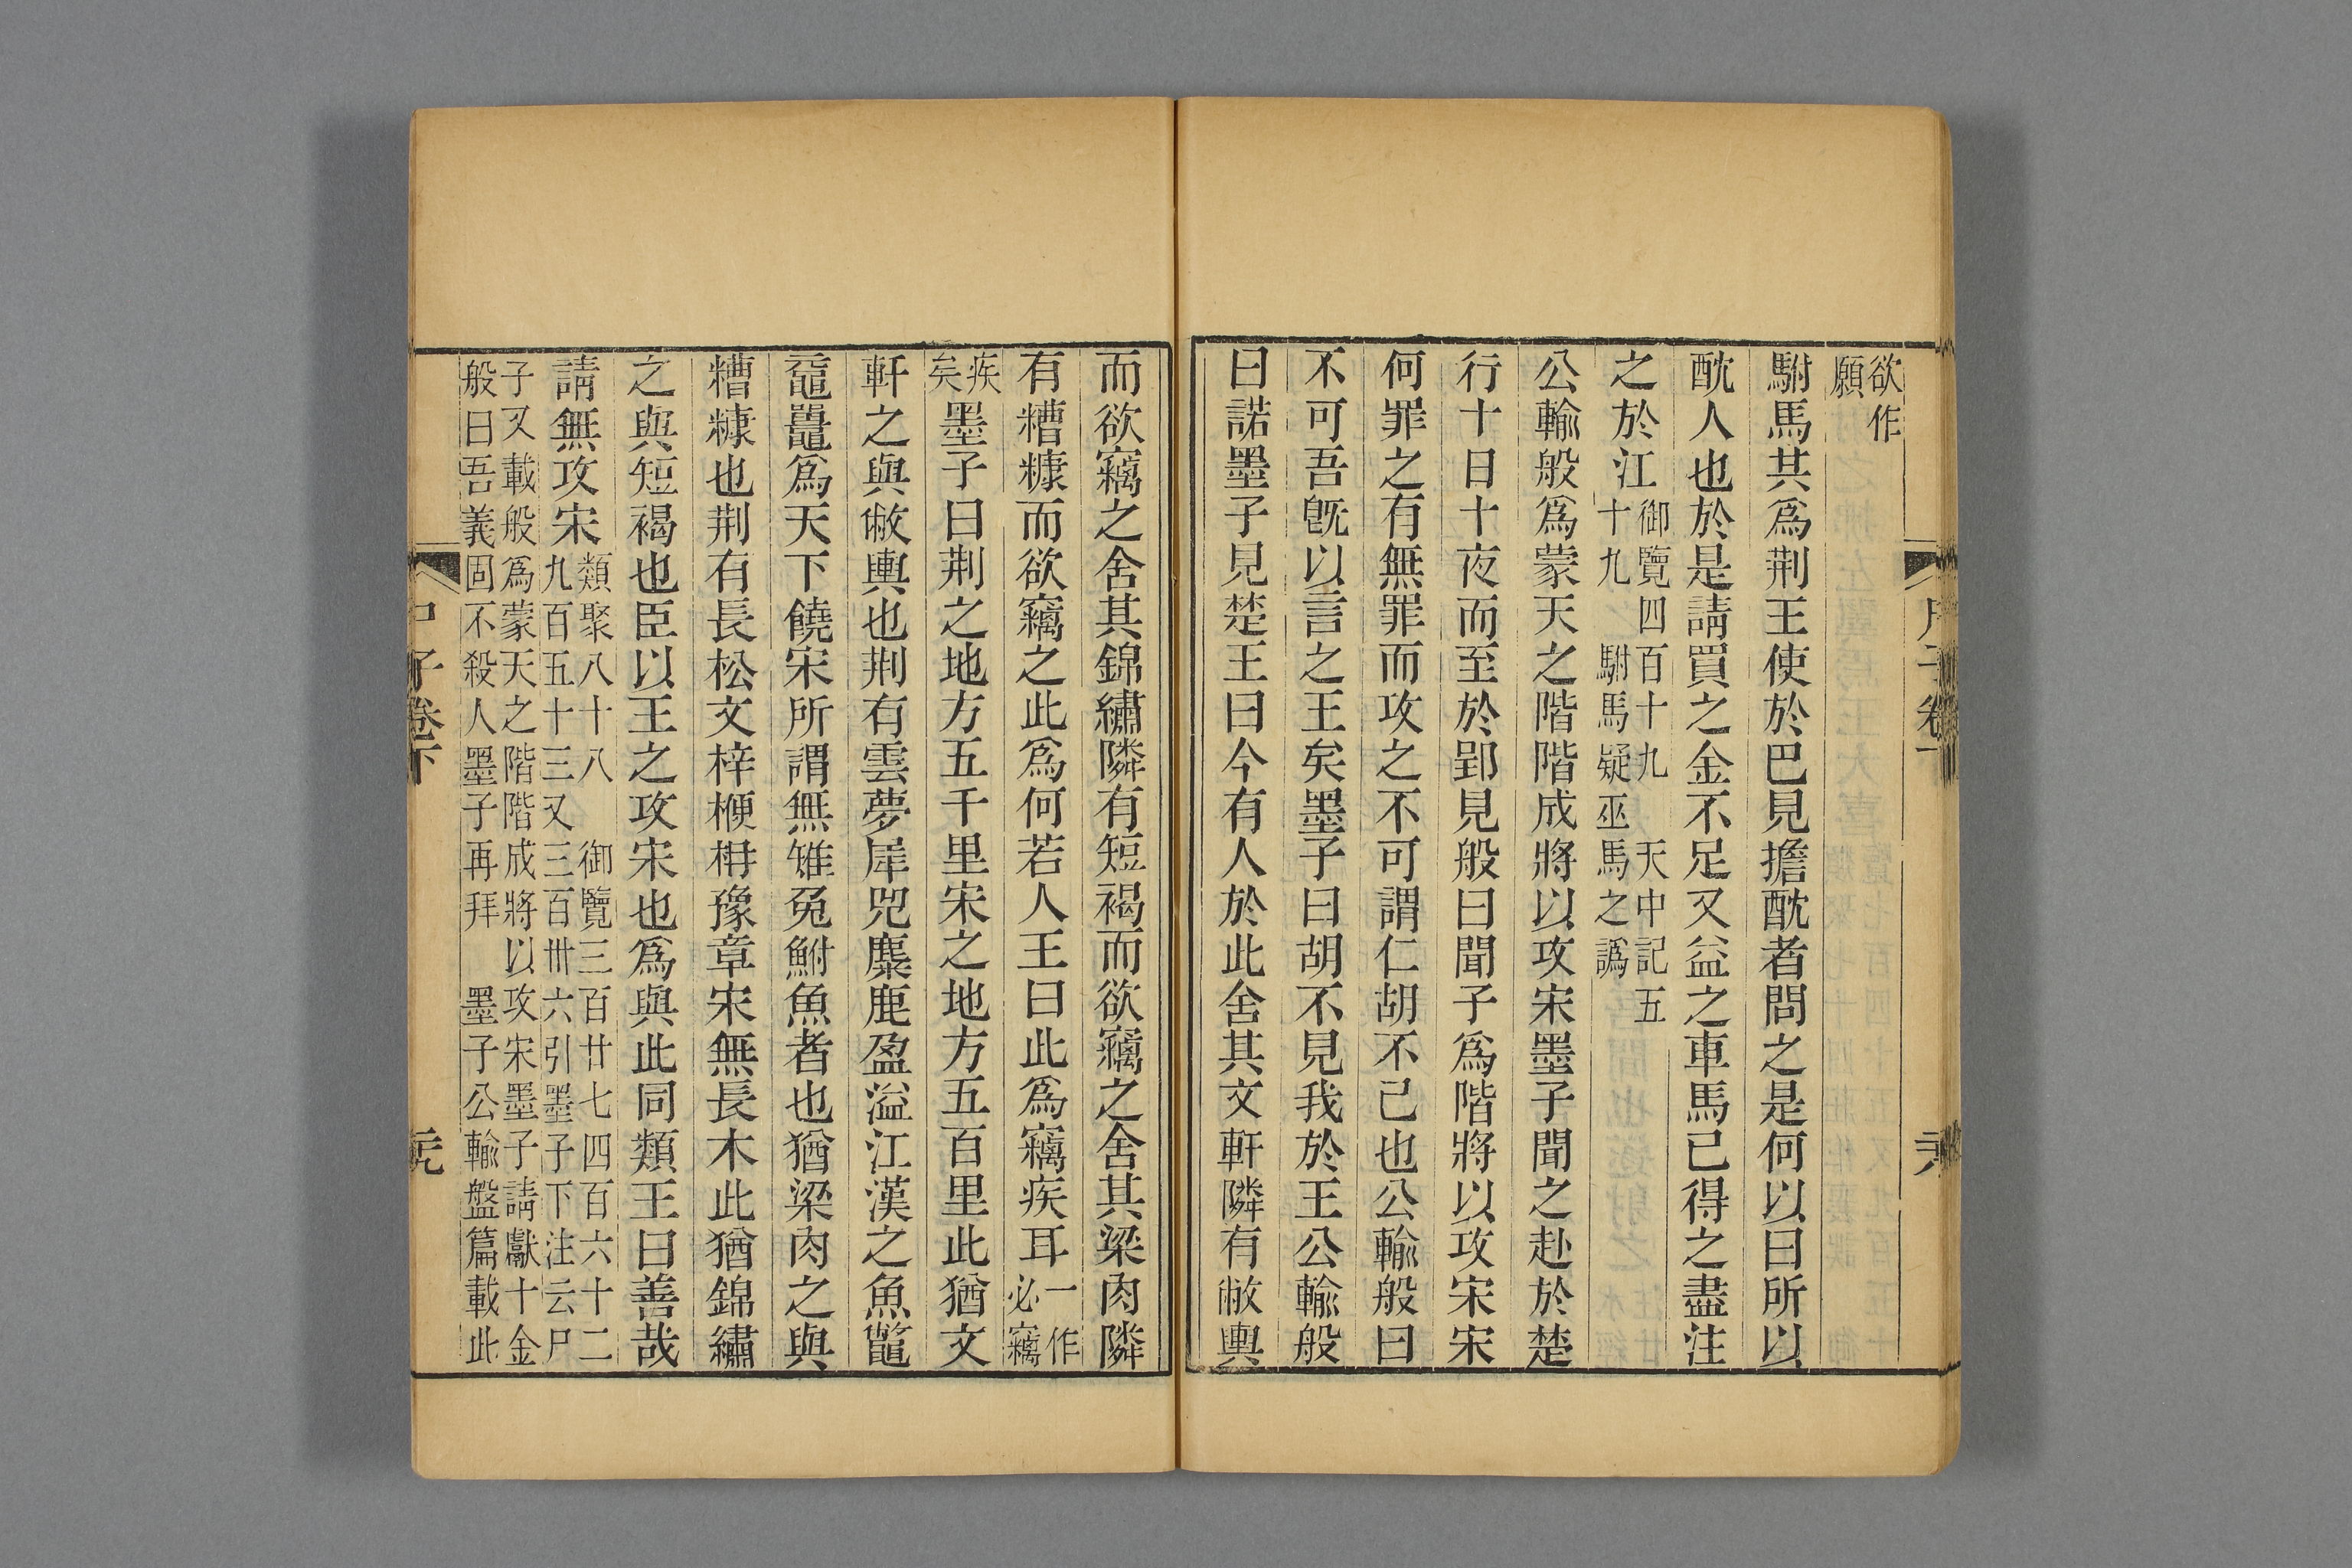 欲作
願
駙馬其爲荆王使於巴見擔酖者問之是何以曰所以
酖人也於是請買之金不足又益之車馬已得之盡注
之於江御覽四百十九 天中記五十九 駙馬疑巫馬之譌
公輸般爲蒙天之階階成將以攻宋墨子聞之赴於楚
行十日十夜而至於郢見般曰聞子爲階將以攻宋宋
何罪之有無罪而攻之不可謂仁胡不已也公輸般曰
不可吾旣以言之王矣墨子曰胡不見我於王公輸般
曰諾墨子見楚王曰今有人於此舍其文軒隣有敝輿
而欲竊之舍其錦繡隣有短褐而欲竊之舍其梁肉隣
有糟糠而欲竊之此爲何若人王曰此爲竊疾耳一作必竊
疾矣墨子曰荆之地方五千里宋之地方五百里此猶文
軒之與敝輿也荆有雲夢犀兕麋鹿盈溢江漢之魚鼈
黿鼉爲天下饒宋所謂無雉兔鮒魚者也猶梁肉之與
糟糠也荆有長松文梓楩枏豫章宋無長木此猶錦繡
之與短褐也臣以王之攻宋也爲與此同類王曰善哉
請無攻宋類聚八十八 御覽三百廿七四百六十二九百五十三又三百卅六引墨子下注云尸
子又載般爲蒙天之階階成將以攻宋墨子請獻十金般曰吾義固不殺人墨子再拜 墨子公輸盤篇載此
子卷下